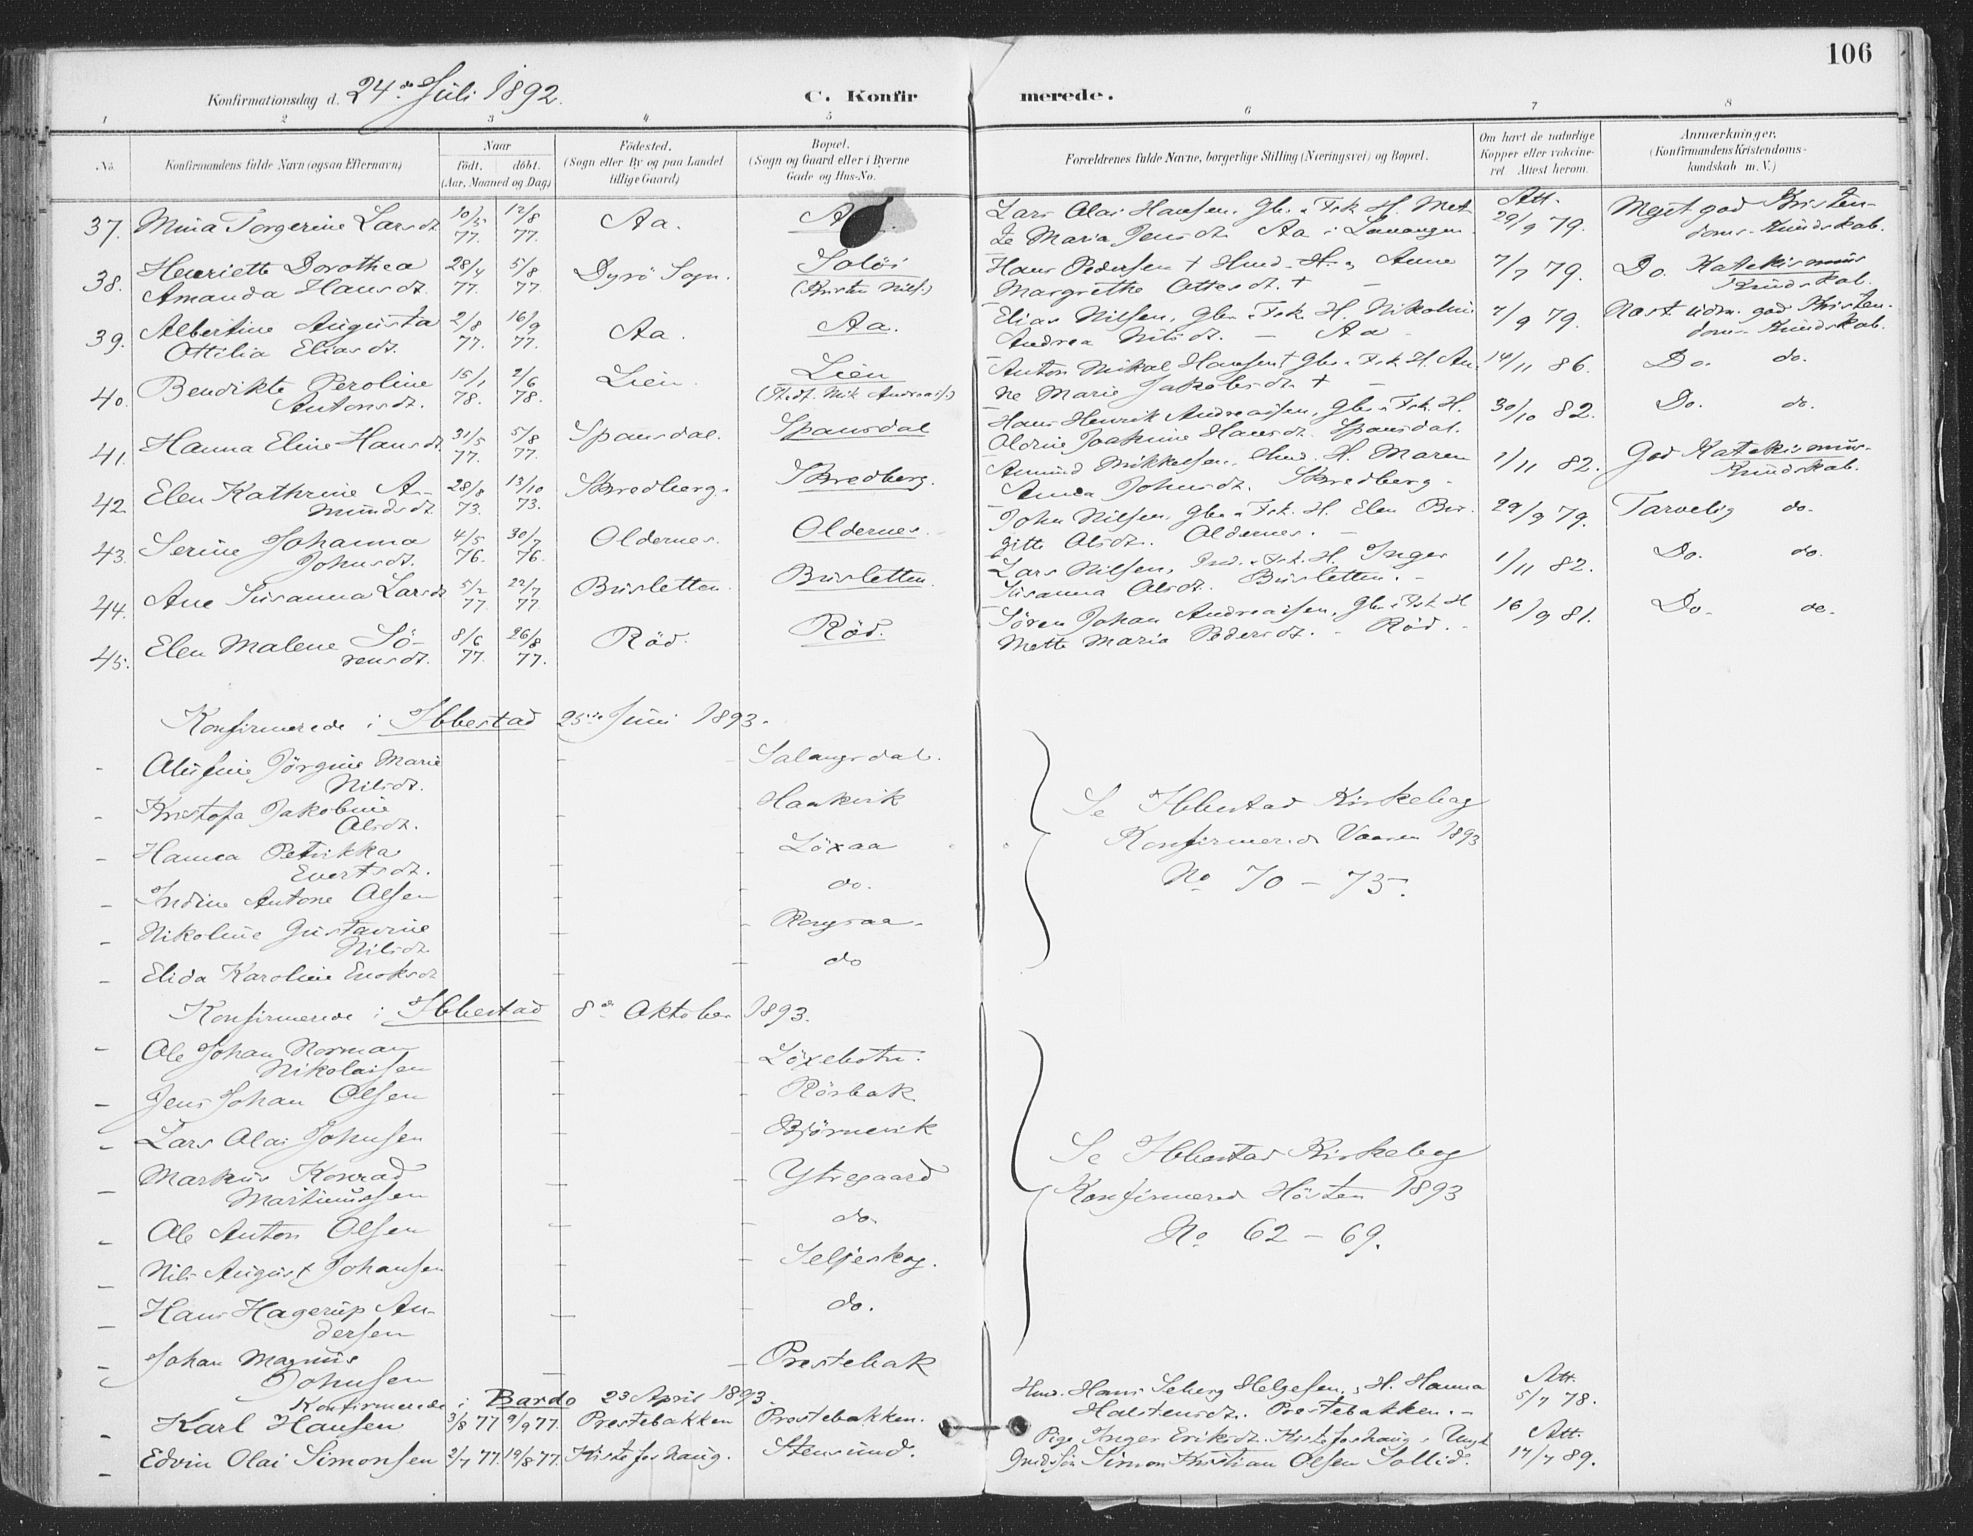 106
Konfirmationsdag d. 24de Juli 1892. C. Konfirmerede.
1 2 3 4 5 6 7 8
No. Konfirmandens fulde Navn (ogsaa Efternavn) Naar født. døbt. (Aar, Maaned og Dag) Födested. (Sogn eller By og paa Landet tillige Gaard) Bopæl. (Sogn og Gaard eller i Byerne Gade og Hus-No. Forældrenes fulde Navne, borgerlige Stilling (Næringsvei) og Bopæl. Om havt de naturlige Kopper eller vakcineret. Attest herom. Anmærkninger. (Konfirmandens Kristendomskundskab m. V.)
37. Mina Torgerine Larsdt. 10/5 77. 12/8 77. Aa. Lars Olai Hansen, Gbr. & Fsk. H. Met- Att. 29/9 79. Meget god Kristen-
te Maria Jensdt. Aa i Lavangen. doms-Kundskab.
38. Henriette Dorothea 28/4 77. 5/8 77. Dyrö Sogn. Soløi Hans Pedersen + Anne 7/7 79. Do. Katekismus
Amanda Hansdt. Margrethe Ottesdt. + Kundskab.
39. Albertine Augusta 2/8 77. 16/9 77. Aa. Aa. Elias Nilsen, Gbr. & Fsk. H. Nikolini 7/9 79. Næst udm. god Kristen-
Ottilia Eliasdt. Andrea Nilsdt. – Aa – doms-Kundskab.
40. Bendikte Peroline 15/1 78. 2/6 78. Lien. Lien Anton Nikal Hansen + Gbr. & Fsk. H. An- 14/11 86. Do. do.
Antonsdt. ne Marie Jakobsdt. + –
41. Hanna Eline Hansdt. 31/5 77. 5/8 77. Spansdal. Spansdal Hans Henrik Andreassen, Gbr. & Fsk. H. 30/10 82. Do. do.
Oldine Joakime Hansdt. Spansdal.
42. Elen Kathrine A- 28/8 73. 13/10 73. Skredberg. Skredberg. Amund Mikkelsen, H. Maren 1/11 82. God Katekismus-
mundsdt. Anna Johnsdt. Skredberg. Kundskab.
43. Serine Johanna 4/5 76. 30/7 76. Oldernes. Oldernes. John Nilsen, Gbr. & Fsk. H. Elen Bir- 29/9 79. Tarvelig do.
Johnsdt. gitte Olsdt. Oldernes. –
44. Ane Susanna Larsdt. 5/2 77 22/7 77. Busletten. Busletten. Lars Nilsen, Ind. & Fsk. H. Inger 1/11 82. Do. do.
Susanna Olsdt. Busletten. –
45. Elen Malene Sö- 8/6 77. 26/8 77. Röd. Röd. Sören Johan Andreassen, Gbr. & Fsk. H 16/9 81. Do. do.
rensdt. Mette Maria Pedersdt. – Röd. –
Konfirmerede i Ibbestad 25de Juni 1893.
– Jörgine Marie Salangsdal.
Nilsdt.
– Kristofa Jakobine Haakvik
Olsdt.
– Hanna Petrikka Löxaa
Evertsdt.
– Indine Antone Olsen do.
– Nikoline Gustavine
Nilsdt.
– Elida Karoline Enoksdt do
Se Ibbestad Kirkebog
Konfirmerede Vaaren 1893
No 70 – 75.
Konfirmerede i Ibbestad 8de Oktober 1893.
– Ole Johan Norman Löxebotn.
Nikolaisen
– Jens Johan Olsen Rörbak
– Lars Olai Johnsen Björnevik
– Markus Konrad Ytregaard
Martinussen
– Ole Anton Olsen do.
– Nils August Johansen Seljeskog.
– Hans Hagerup An- do.
dersen
– Johan Magnus Prestebak
Johnsen
Se Ibbestad Kirkebog
Konfirmerede Hösten 1893
No 62 – 69.
Konfirmerede i Bardo 23 April 1893.
– Karl Hansen 3/8 77 9/9 77. Prestebakken Prestebakken. Hmd. Hans Seberg Helgesen, H. Hanna Att. 5/7 78.
Halstensdt. Prestebakken. –
– Edvin Olai Simonsen 2/7 77. 19/8 77. Kistefoshaug. Stensund. Pige Inger Eriksdt. Kistefoshaug & Ungk Att. 17/7 89.
Simon Kristian Olsen Sollid.